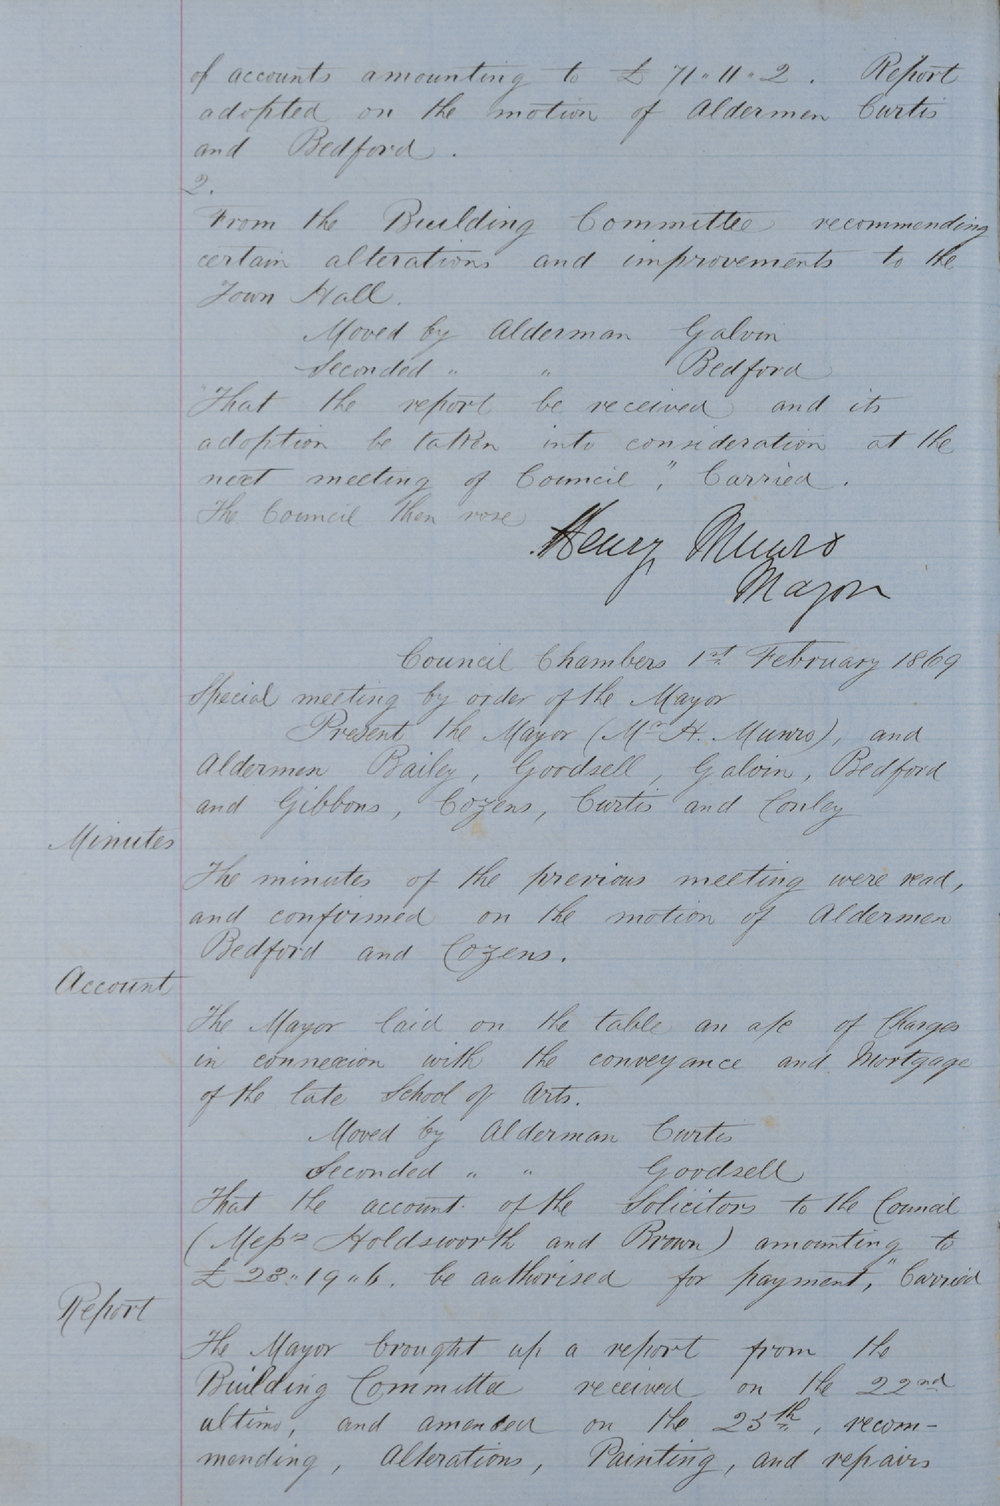 of accounts amounting to £ 71 " 11 " 2 . Report
adopted on the motion of Aldermen Curtis
and Bedford .
2.
From the Building Committee recommending
certain alterations and improvements to the
Town Hall.
Moved by Alderman Galvin
Seconded " " Bedford
"That the report be received and its
adoption be taken into consideration at the
next meeting of Council", Carried .
The Council then rose
Henry Munro
Mayor
Council Chambers 1st February 1869
Special meeting by order of the Mayor
Present the Mayor (Mr H. Munro), and
Aldermen Bailey, Goodsell, Galvin, Bedford
and Gibbons, Cozens, Curtis and Conley
Minutes
The minutes of the previous meeting were read,
and confirmed on the motion of Aldermen
Bedford and Cozens.
Account
The Mayor laid on the table an a/c of Charges
in connexion with the conveyance and Mortgage
of the late School of Arts.
Moved by Alderman Curtis
Seconded " " Goodsell
That the account of the Solicitors to the Council
(Messrs Holdsworth and Brown) amounting to
£ 23 " 19 " 6. be authorised for payment," Carried
Report
The Mayor brought up a report from the
Building Committee received on the 22nd
ultimo, and amended on the 25th, recom-
mending, Alterations, Painting, and repairs